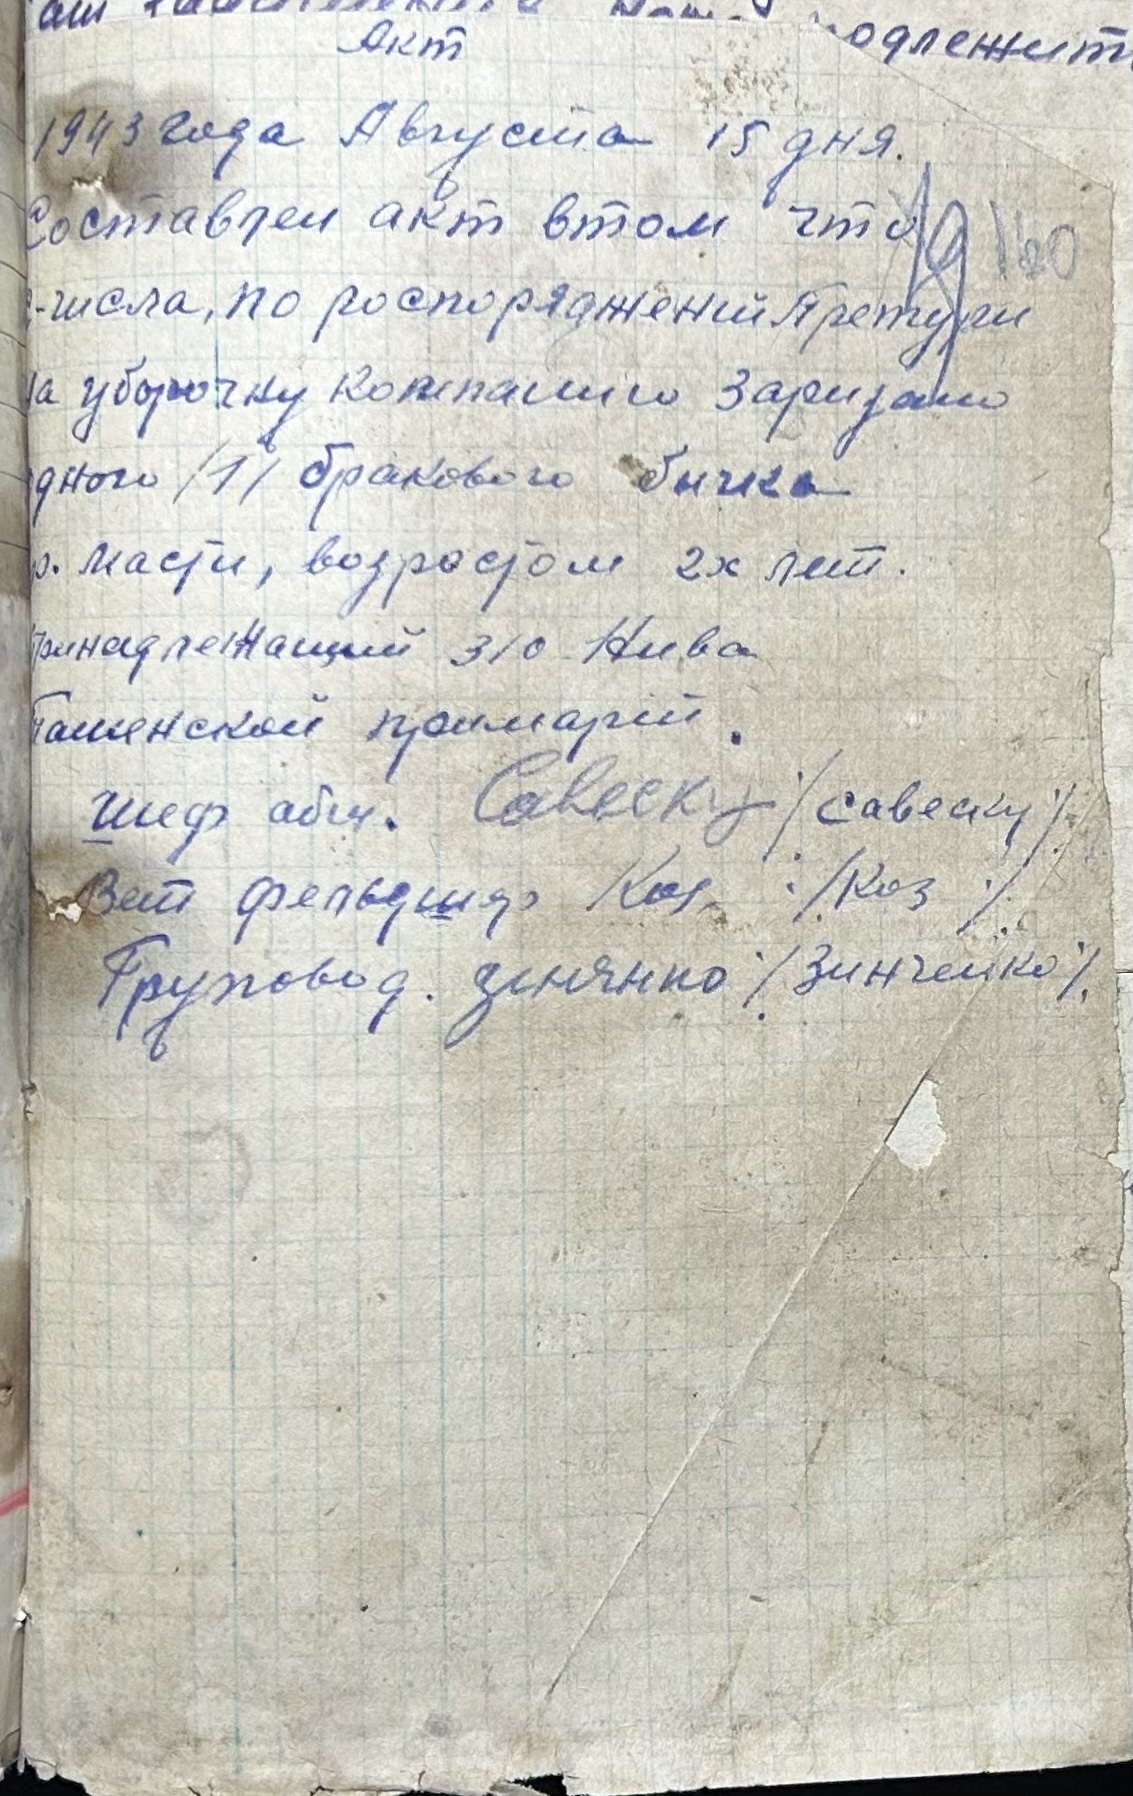 подлежит
Акт
1943 года Августа 15 дня.
Составлен акт втом что
-числа, по роспоряджений Претури
на уборочну Компанию Заризано
дного /1/ бракового бычка
р. масти, возростом 2х лет.
принадлежащий з/о Нива
ташенской примарій.
Шеф Савеску /Савеску/
Вет фельдшер Коз /Коз/
Груповод. /Зинченко/